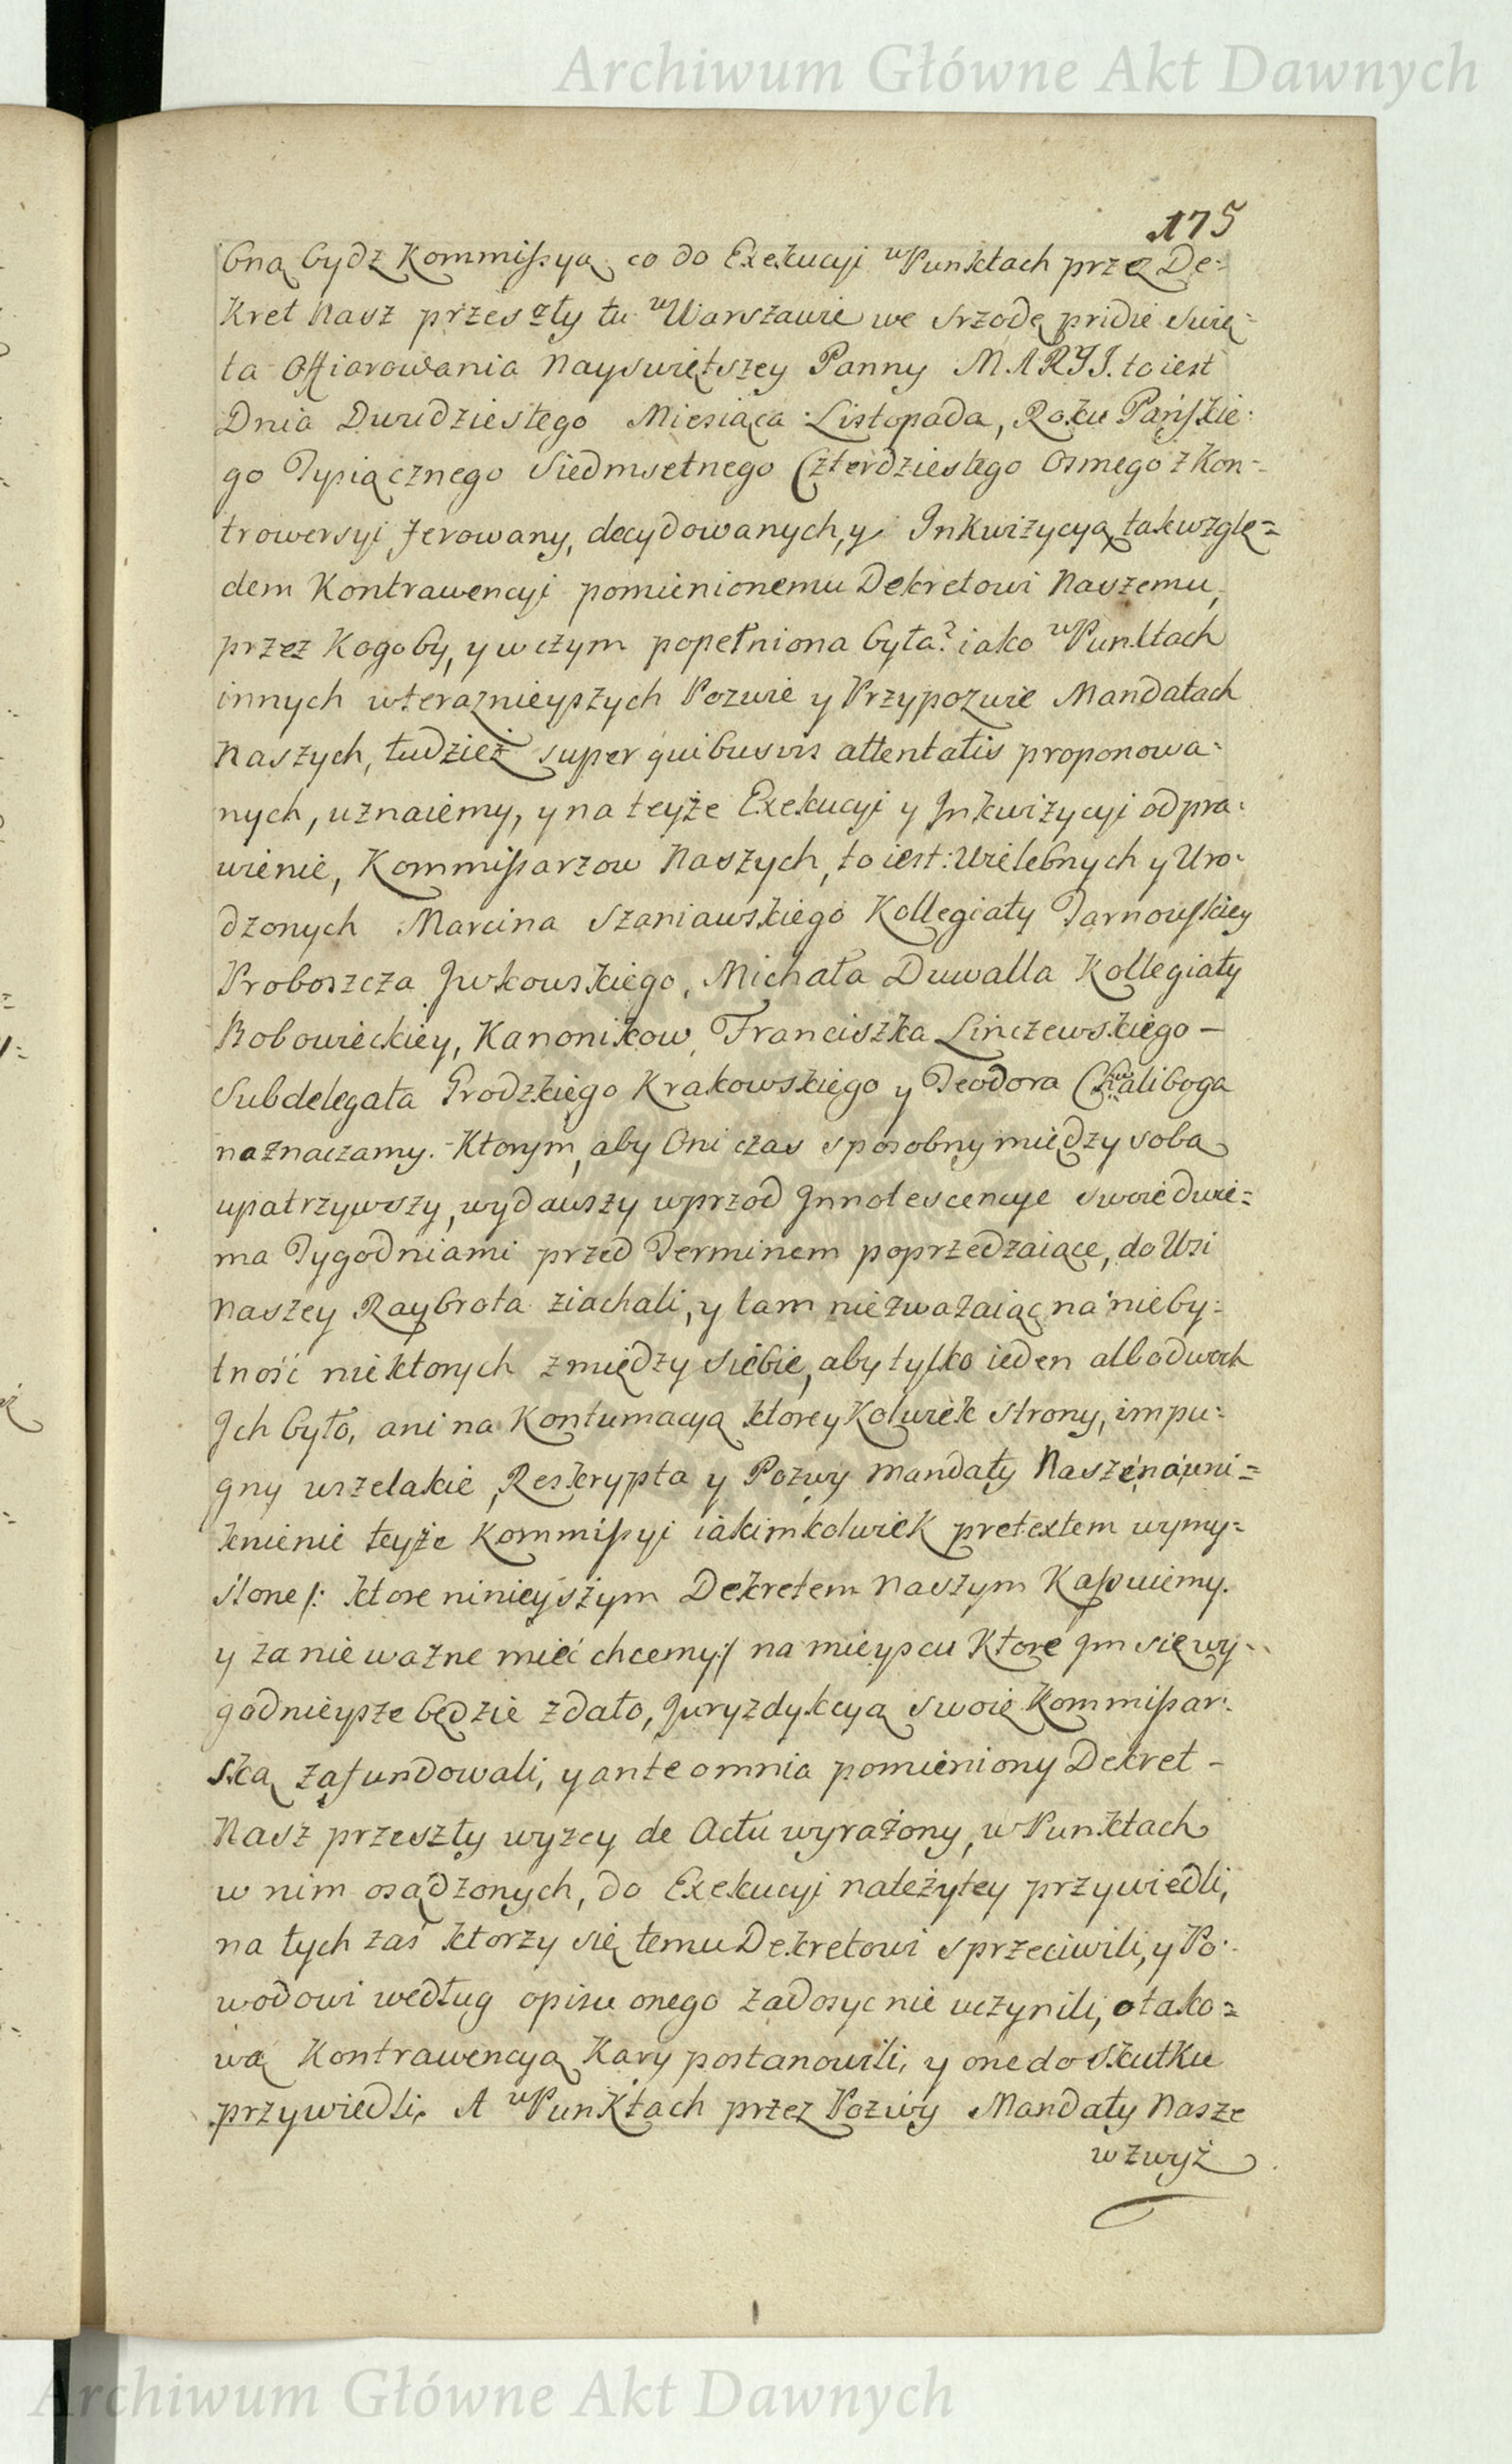 Archiwum Główne Akt Dawnych
175
bną bydz Kommissyą, co do Exekucyi w Punktach prze De-
kret Nasz przeszły tu w Warszawie we Srzodę pridie Swię-
ta Offiarowania Nayswiętszey Panny MARYI. to iest
Dnia Dwudziestego Miesiąca Listopada, Roku Pańskie-
go Tysiącznego Siedmsetnego Czterdziestego Osmego z Kon-
trowersyi ferowany, decydowanych, y Inkwizycyą tak wzglę-
dem Kontrawencyi pomienionemu Dekretowi Naszemu,
przez Kogoby, y w czym popełniona była? iako w Punktach
innych w teraznieyszych Pozwie y Przypozwie Mandatach
Naszych, tudzież super quibusvis attentatis proponowa-
nych, uznaiemy, y na teyże Exekucyi y Inkwizycyi odpra-
wienie, Kommissarzow Naszych, to iest: Wielebnych y Uro-
dzonych Marcina Szaniawskiego Kollegiaty Tarnowskiey
Proboszcza Iwkowskiego, Michała Duwalla Kollegiaty
Bobowieckiey, Kanonikow, Franciszka Linczewskiego –
Subdelegata Grodzkiego Krakowskiego y Teodora Chwaliboga
naznaczamy. Ktorym, aby Oni czas sposobny między sobą
upatrzywszy, wydawszy wprzod Innotescencye swoie dwie-
ma Tygodniami przed Terminem poprzedzaiące, do Wsi
Naszey Raybrota ziachali, y tam niezważaiąc na nieby-
tność niektorych z między siebie, aby tylko ieden albo dwoch
Ich było, ani na Kontumacyą ktorey Kolwiek strony, impu-
gny wszelakie, Reskrypta y Pozwy Mandaty Nasze na uni-
knienie teyże Kommissyi iakimkolwiek pretextem wymy-
ślone /: ktore ninieyszym Dekretem Naszym Kassuiemy.
y za nie ważne mieć chcemy :/ na mieyscu Ktore Im się wy-
godnieysze będzie zdało, Juryzdykcyą swoię Kommissar-
ską zafundowali, y ante omnia pomieniony Dekret –
Nasz przeszły wyzey de Actu wyrażony, w Punktach
w nim osądzonych, do Exekucyi należytey przywiedli,
na tych zaś ktorzy się temu Dekretowi sprzeciwili, y Po-
wodowi według opisu onego zadosyc nie uczynili, o tako-
wą Kontrawencyą Kary postanowili, y one do skutku
przywiedli. A w Punktach przez Pozwy Mandaty Nasze
wzwyż
Archiwum Główne Akt Dawnych